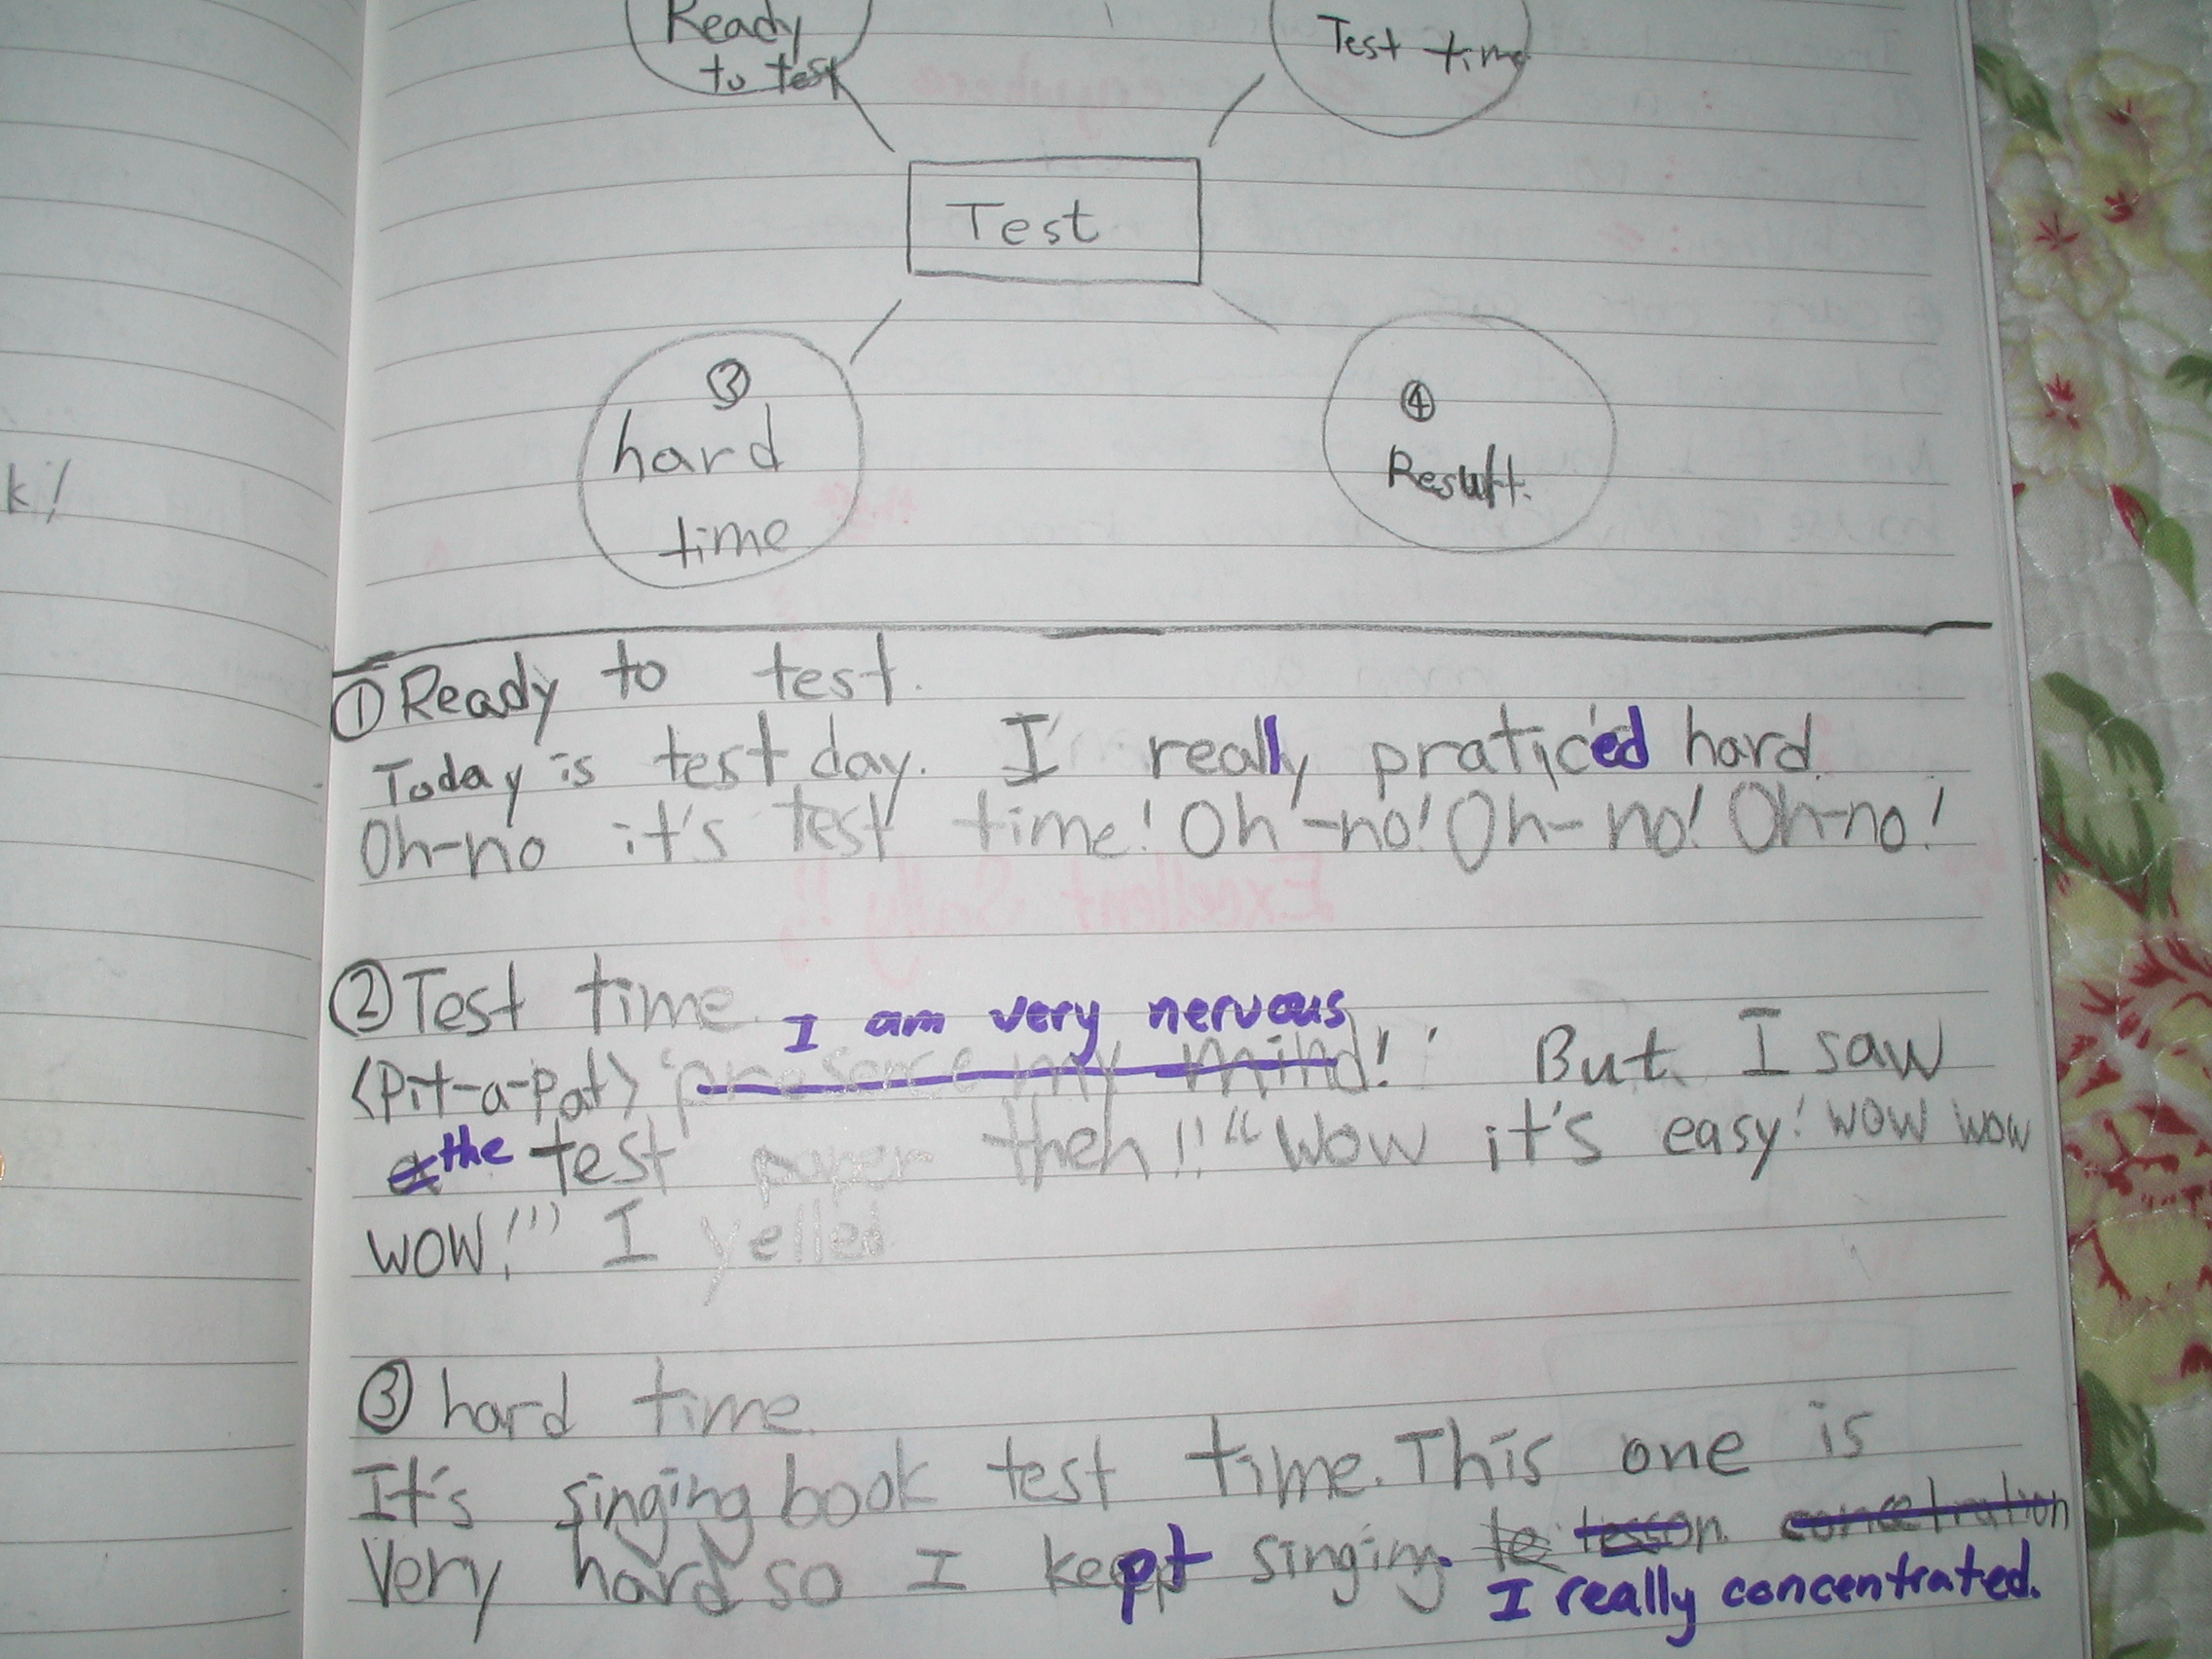 Ready
to test
Test time
Test
③
hard
time
④
Result.
k!
① Ready to test.
Today is test day. I really praticed hard.
Oh-no it's test time! Oh-no! Oh-no! Oh-no!
Excellent Sally!!
② Test time.
I am very nervous
<Pit-a-Pat> 'presence my mind!' But I saw
a the test paper then!! "Wow it's easy! wow wow
wow!!!" I yelled
③ hard time.
It's singing book test time. This one is
Very hard so I kept singing. le lesson. concetration
I really concentrated.